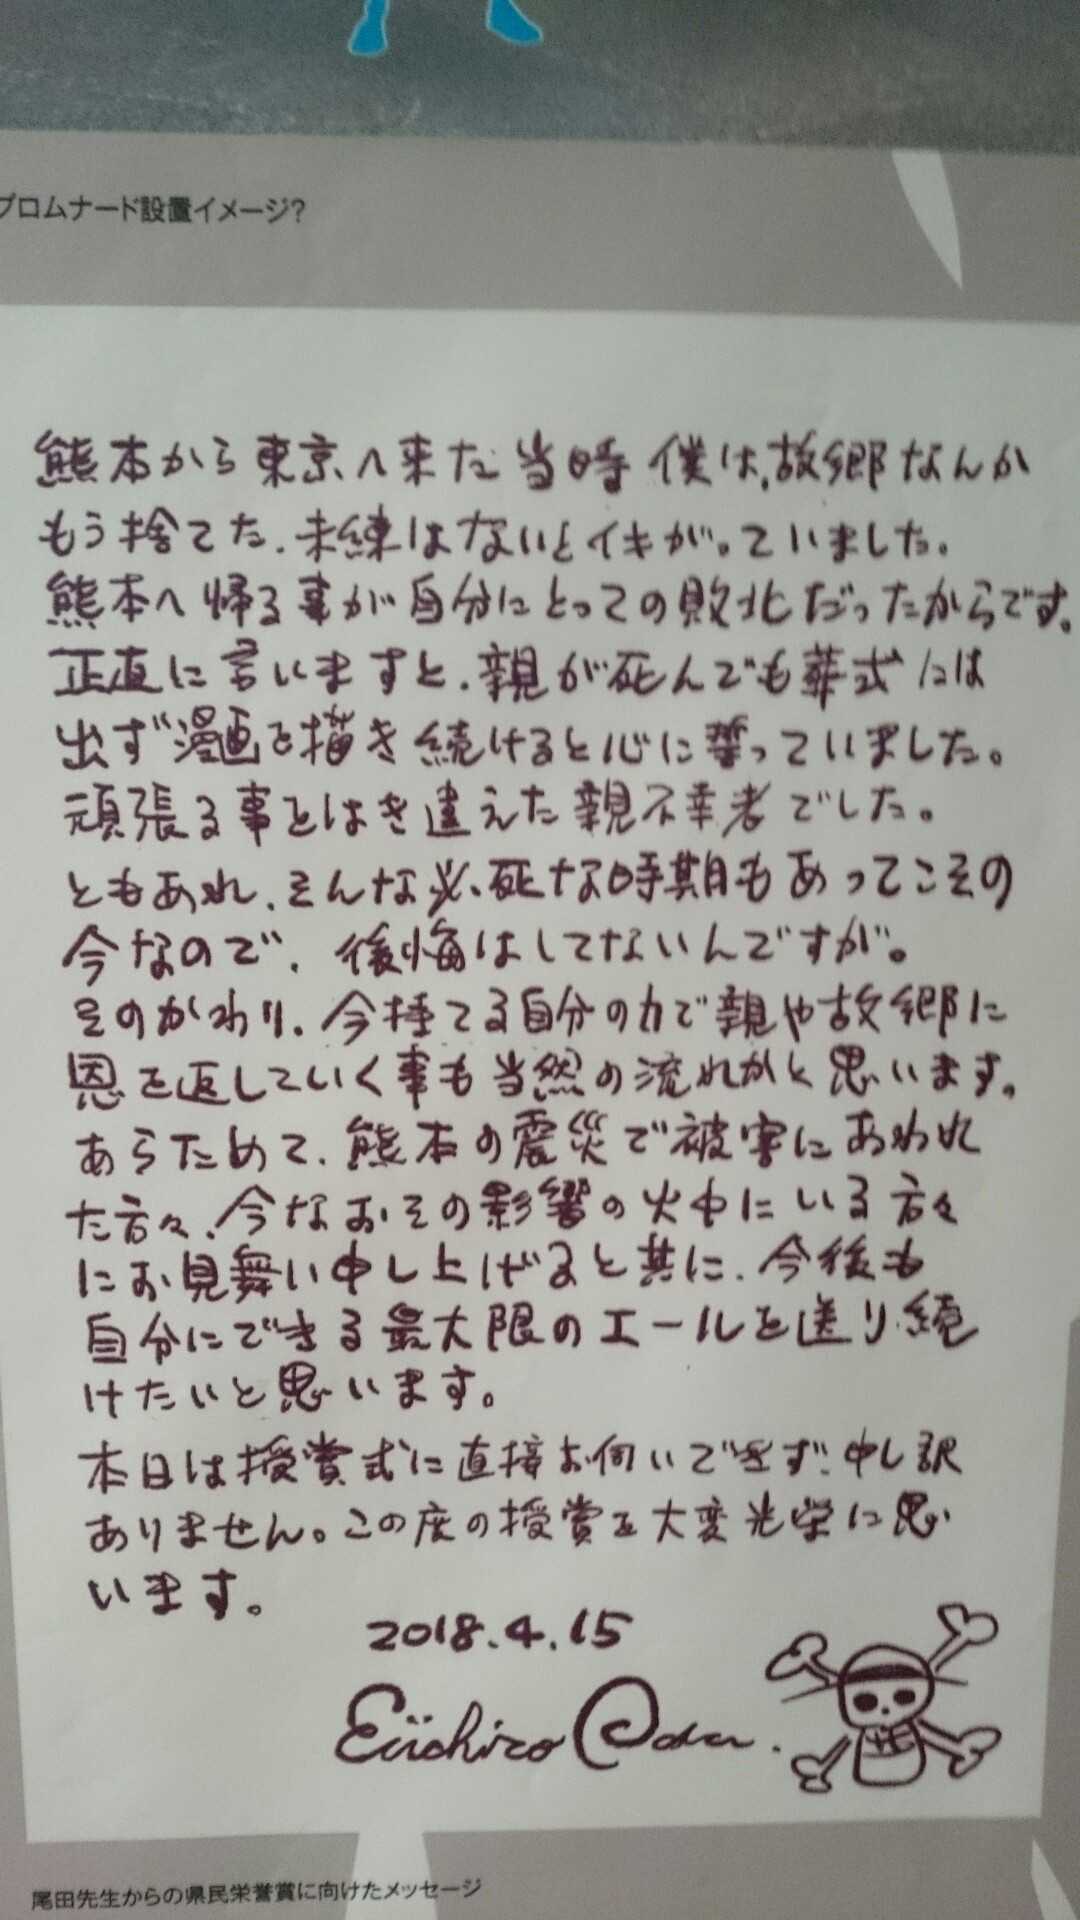 プロムナード設置イメージ?
熊本から東京へ来た当時僕は、故郷なんか
もう捨てた、未練はないとイキがっていました。
熊本へ帰る事が自分にとっての敗北だったからです。
正直に言いますと、親が死んでも葬式には
出ず漫画を描き続けると心に誓っていました。
頑張る事とはき違えた親不幸者でした。
ともあれ、そんな必死な時期もあってこその
今なので、後悔はしてないんですが。
そのかわり、今持てる自分の力で親や故郷に
恩を返していく事も当然の流れかと思います。
あらためて、熊本の震災で被害にあわれ
た方々、今なおその影響の火中にいる方々
にお見舞い申し上げると共に、今後も
自分にできる最大限のエールを送り続
けたいと思います。
本日は授賞式に直接お伺いできず、申し訳
ありません。この度の授賞を大変光栄に思
います。
2018.4.15
Eiichiro Oda.
尾田先生からの県民栄誉賞に向けたメッセージ